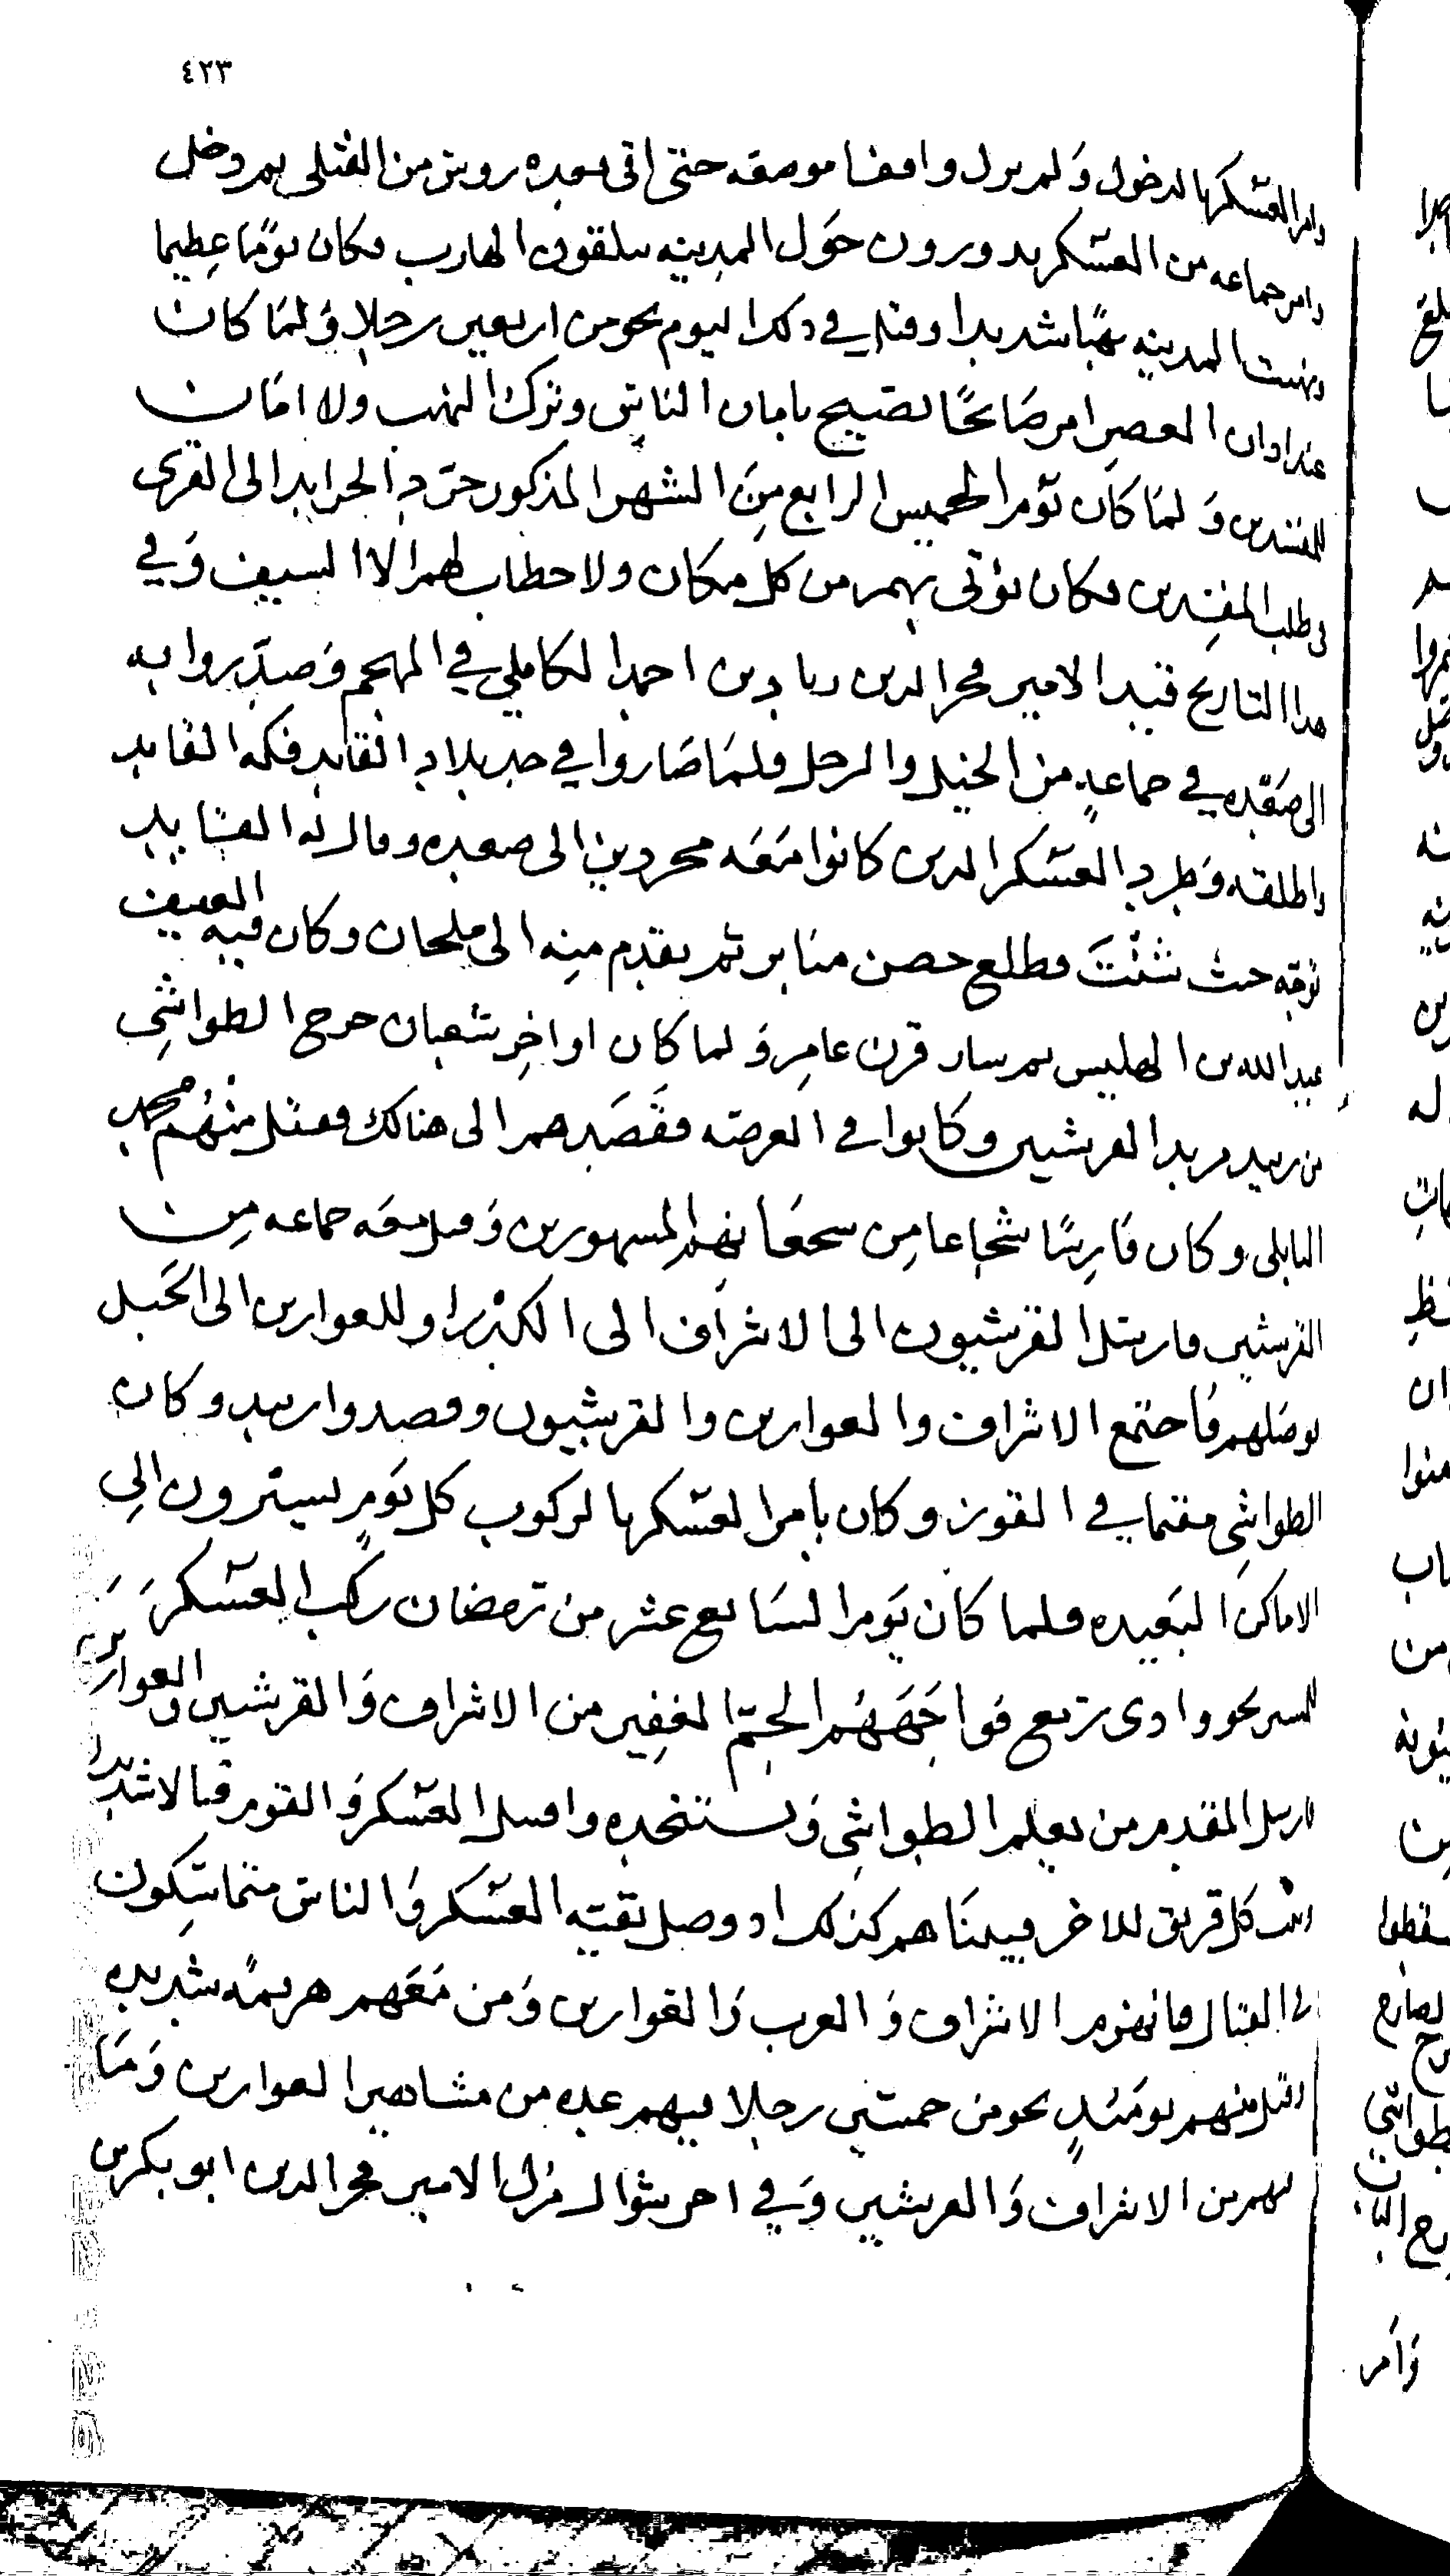 ٤٢٣
وامر العسكر بالدخول ولم يزل واقفا موضعه حتى اتى بعده روس من القتلى ثم دخل
وامر جماعه من العسكر يدورون حول المدينه يتلقون الهارب فكان يوما عظيما
ونهبت المدينه نهبا شديدا وقتل في ذلك اليوم نحو من اربعين رجلا ولما كان
عند اوان العصر امر صائحا يصيح بامان الناس وترك النهب ولا امان
للمفسدين ولما كان يوم الخميس الرابع من الشهر المذكور جرد الجرايد الى القرى
في طلب المفسدين فكان يؤتى بهم من كل مكان ولا خطاب لهم الا السيف وفي
هذا التاريخ قيد الامير فخر الدين زياد بن احمد الكاملي في المهجم وصدروا به
الى صعده في جماعة من الخيل والرجل فلما صاروا في حد بلاد القايد فكه القايد
واطلقه وطرد العسكر الذين كانوا معه مجردين الى صعده وقال له القايد
توجه حيث شئت فطلع حصن منابر ثم تقدم منه الى ملحان وكان فيه العفيف
عبد الله بن الهليس ثم سار قرن عامر ولما كان اواخر شعبان خرج الطواشي
من زبيد يريد القرشيين وكانوا في العرصه فقصدهم الى هنالك فقتل منهم محمد
البابلي وكان فارسا شجاعا من شجعانهم المشهورين وقتل معه جماعه من
القرشيين فارسل القرشيون الى الاشراف الى الكدرا وللعوارين الى الجبل
بوصلهم فاجتمع الاشراف والعوارين والقرشيون وقصدوا زبيد وكان
الطواشي مقيما في القوز وكان يامر العسكر بالركوب كل يوم يسيرون الى
الاماكن البعيده فلما كان يوم السابع عشر من رمضان ركب العسكر
للسير نحو وادي رمع فواجههم الجم الغفير من الاشراف والقرشيين والعوارين
فارسل المقدم من يعلم الطواشي ويستنجده واقتتل العسكر والقوم قتالا شديدا
وثبت كل فريق للاخر فبينما هم كذلك اذ وصل بقية العسكر والناس متماسكون
في القتال فانهزم الاشراف والعرب والعوارين ومن معهم هزيمة شديده
وقتل منهم يومئذ نحو من خمسين رجلا فيهم عده من مشاهير العوارين وما
فيهم من الاشراف والقرشيين وفي اخر شوال نزل الامير فخر الدين ابو بكر بن